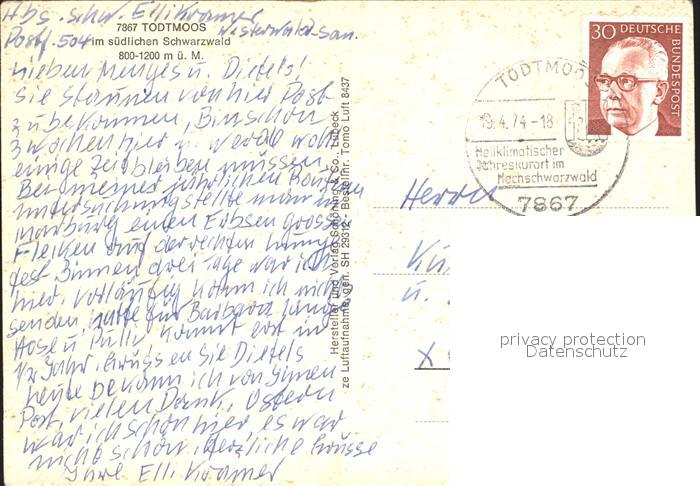 Abs. Schw. Elli Kramer
7867 TODTMOOS
Postf. 504 Westerwald-San.
im südlichen Schwarzwald
800-1200 m ü. M.
Lieben Menges u. Dietels!
Sie staunen von hier Post
zu bekommen, Bin schon
3 Wochen hier u. werde wohl
einige Zeit bleiben müssen,
Bei meiner jährlichen Röntgen
Untersuchung stellte man in
Marburg einen Erbsen grossen
Flecken auf der rechten Lunge
fest. Binnen drei Tage war ich
hier. Vorläufig kann ich nichts
senden, hatte für Barbara
Hose u. Pulli kommt erst in
1/2 Jahr. Grüssen Sie Dietels
heute bekam ich von Ihnen
Post, vielen Dank. Ostern
war ich schon hier es war
nicht schön. Herzliche Grüsse
Ihre Elli Kramer
Hersteller und Verlag Schöning & Co., Lübeck
ze Luftaufnahme, gen. SH 29312 - Bestellnr. Tomo Luft 8437
30 DEUTSCHE
BUNDESPOST
TODTMOOS
.4.74-18
Heilklimatischer
Jahreskurort im
Hochschwarzwald
7867
Herrn
u.
privacy protection
Datenschutz